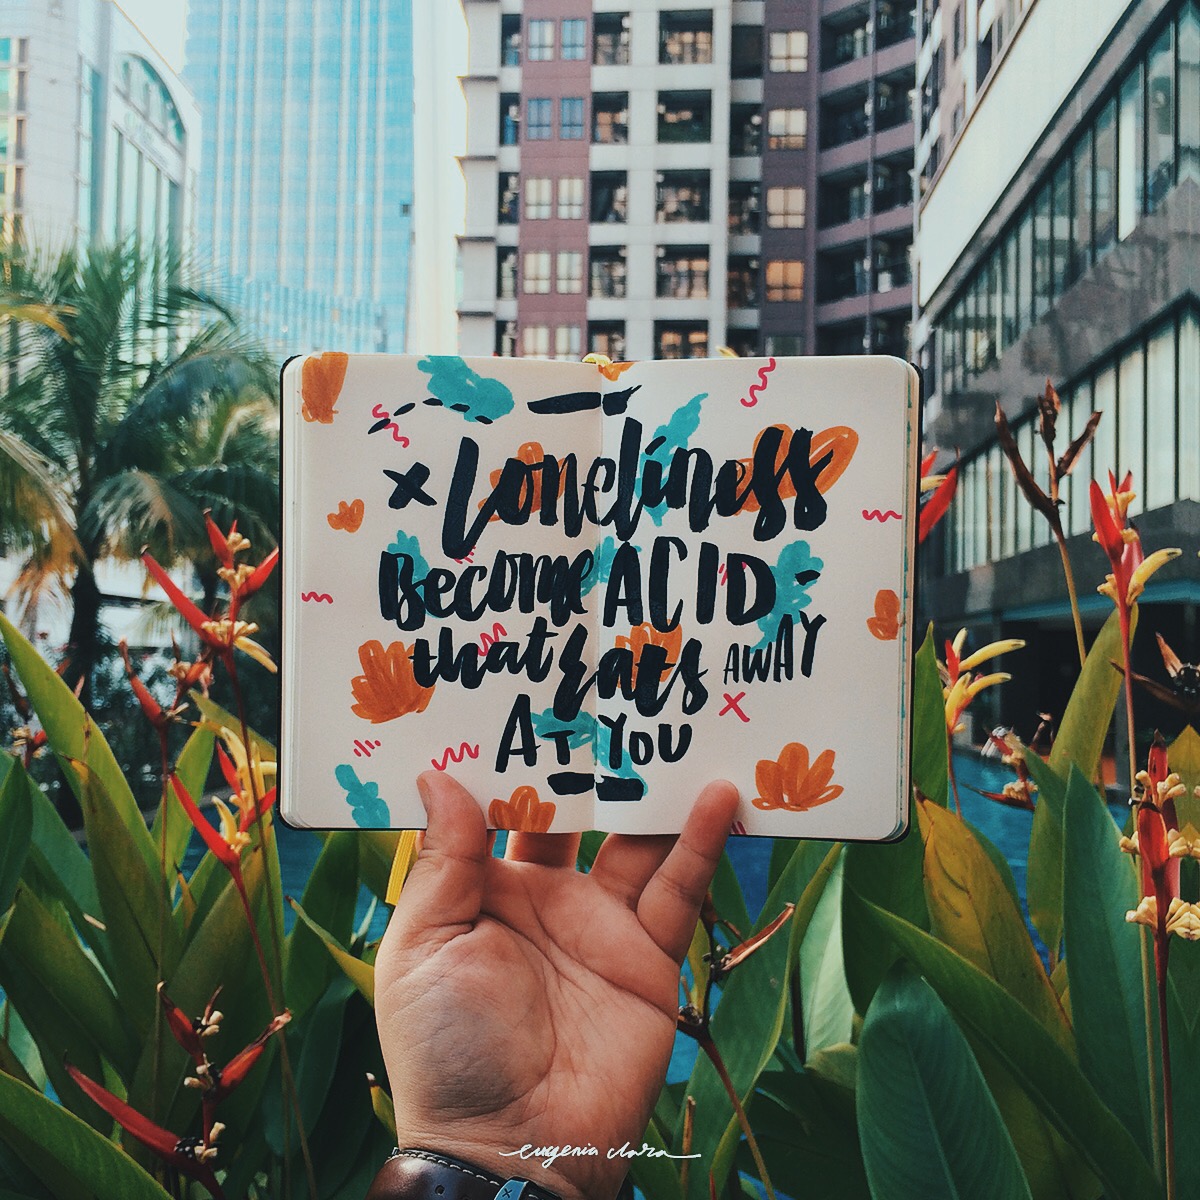 Loneliness
Become ACID
that Eats AWAY
AT YOU
eugenia clara